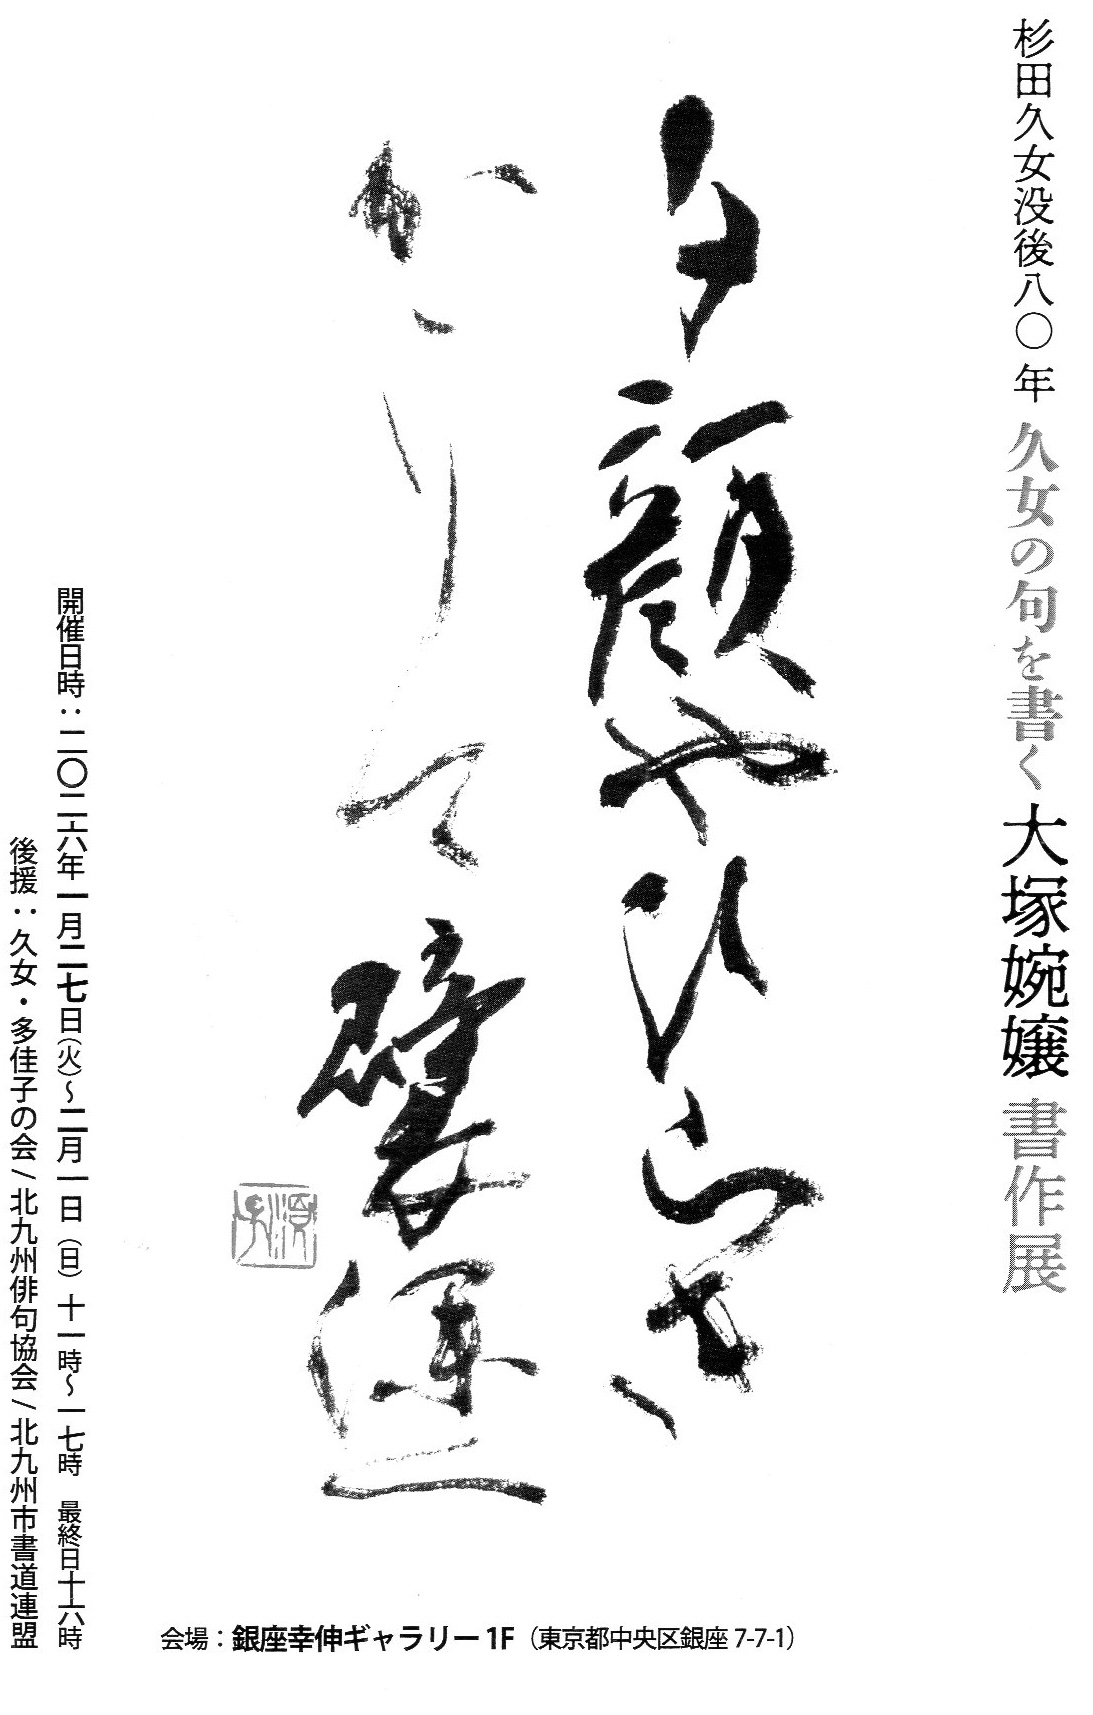 杉田久女没後八〇年 久女の句を書く 大塚婉嬢 書作展
夕顔やひらき
かゝりて襞深く
開催日時：二〇二六年一月二七日（火）〜二月一日（日）十一時〜一七時 最終日十六時
後援：久女・多佳子の会 / 北九州俳句協会 / 北九州市書道連盟
会場：銀座幸伸ギャラリー 1F（東京都中央区銀座 7-7-1）